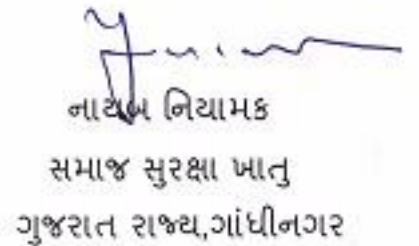 નાયબ નિયામક
સમાજ સુરક્ષા ખાતુ
ગુજરાત રાજ્ય,ગાંધીનગર